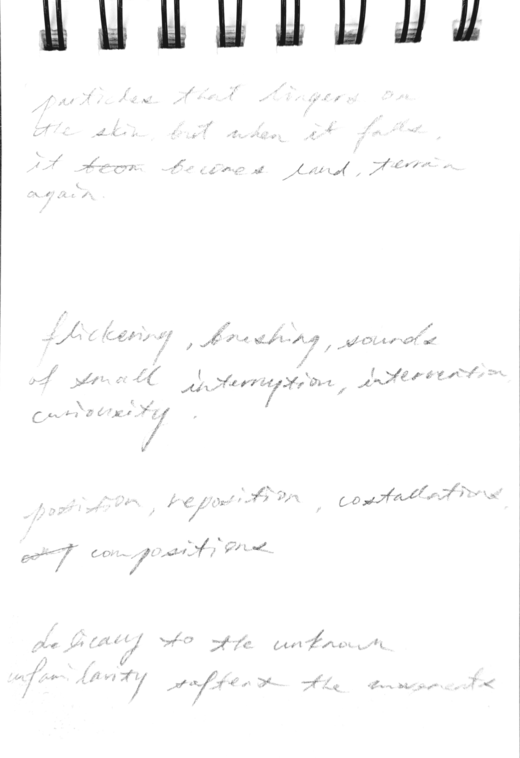 particles that lingers on
the skin, but when it falls,
it becomes land, terrain
again.
flickering, brushing, sounds
of small interruption, intervention,
curiousity.
position, reposition, costallations,
compositions
delicacy to the unknown
unfamilarity softens the movements